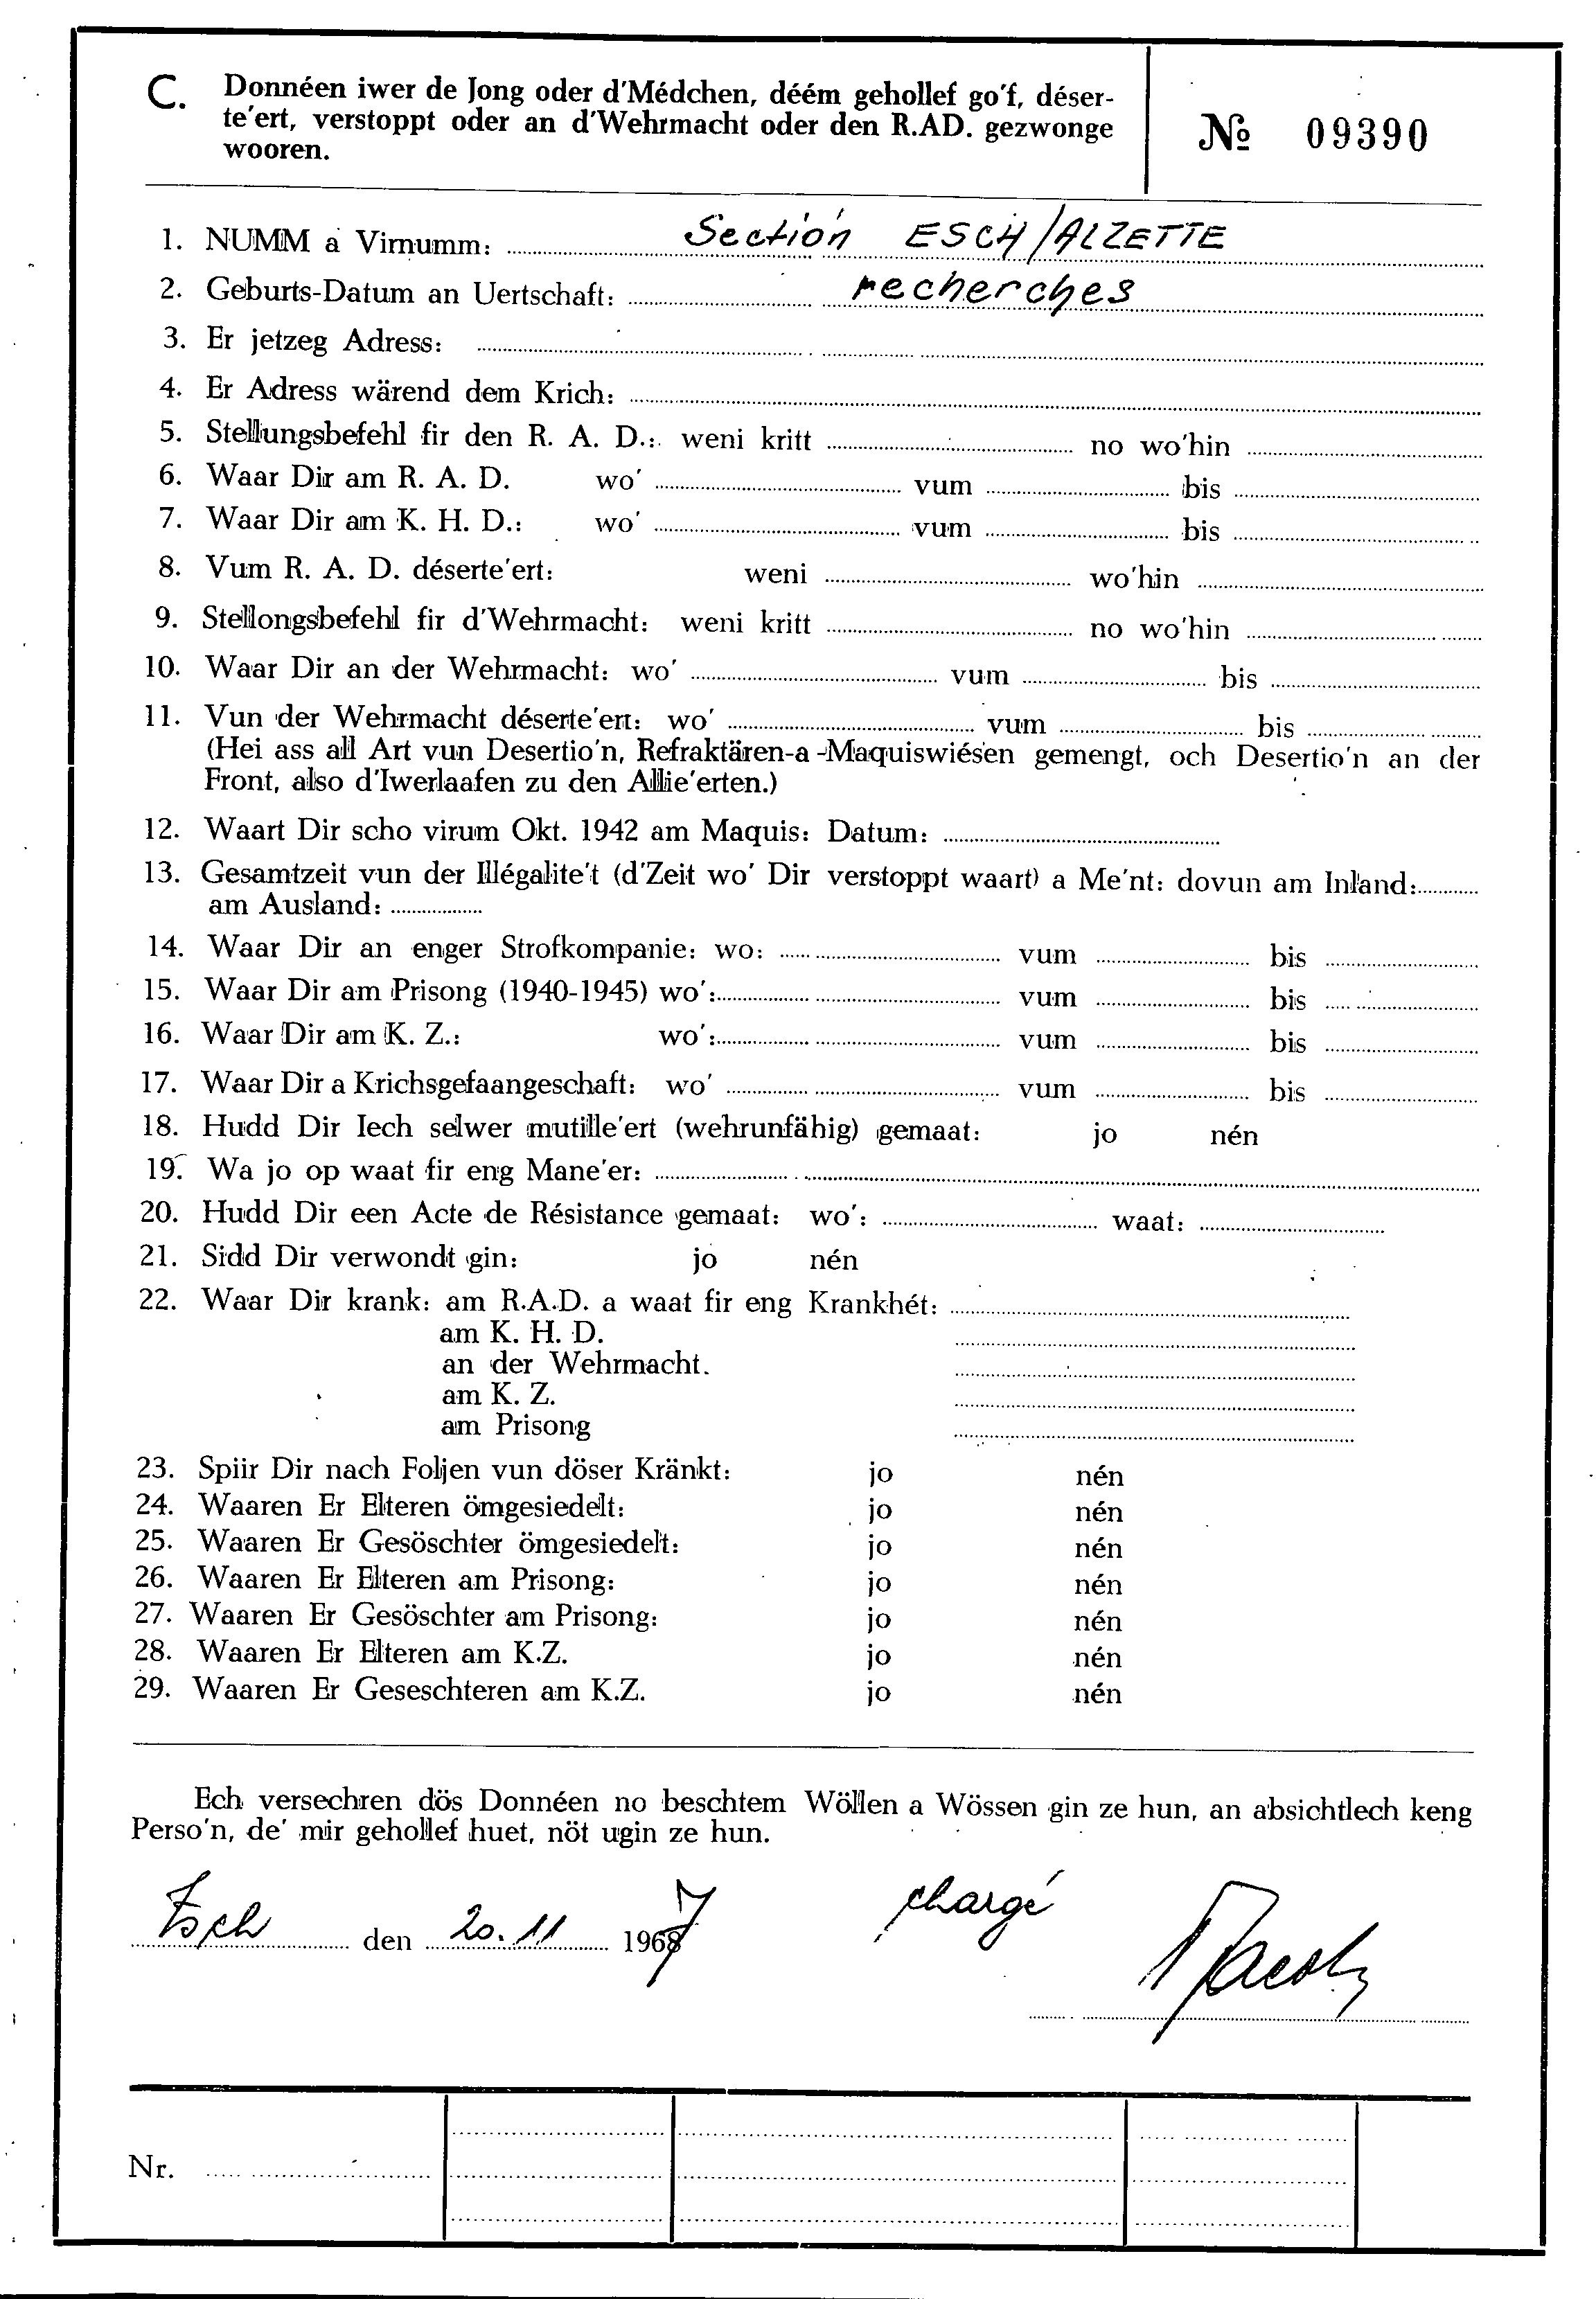 C. Donnéen iwer de Jong oder d'Médchen, déém gehollef go'f, déser-
te'ert, verstoppt oder an d'Wehrmacht oder den R.AD. gezwonge
wooren.
№ 09390
1. NUMM a Virnumm: Section ESCH/ALZETTE
2. Geburts-Datum an Uertschaft: recherches
3. Er jetzeg Adress:
4. Er Adress wärend dem Krich:
5. Stellungsbefehl fir den R. A. D.: weni kritt no wo'hin
6. Waar Dir am R. A. D. wo' vum bis
7. Waar Dir am K. H. D.: wo' vum bis
8. Vum R. A. D. déserte'ert: weni wo'hin
9. Stellongsbefehl fir d'Wehrmacht: weni kritt no wo'hin
10. Waar Dir an der Wehrmacht: wo' vum bis
11. Vun der Wehrmacht déserte'ert: wo' vum bis
(Hei ass all Art vun Desertio'n, Refraktären-a-Maquiswiésen gemengt, och Desertio'n an der
Front, also d'Iwerlaafen zu den Allie'erten.)
12. Waart Dir scho virum Okt. 1942 am Maquis: Datum:
13. Gesamtzeit vun der Illégalite't (d'Zeit wo' Dir verstoppt waart) a Me'nt: dovun am Inland:
am Ausland:
14. Waar Dir an enger Strofkompanie: wo: vum bis
15. Waar Dir am Prisong (1940-1945) wo': vum bis
16. Waar Dir am K. Z.: wo': vum bis
17. Waar Dir a Krichsgefaangeschaft: wo' vum bis
18. Hudd Dir Iech selwer mutille'ert (wehrunfähig) gemaat: jo nén
19. Wa jo op waat fir eng Mane'er:
20. Hudd Dir een Acte de Résistance gemaat: wo': waat:
21. Sidd Dir verwondt gin: jo nén
22. Waar Dir krank: am R.A.D. a waat fir eng Krankhét:
am K. H. D.
an der Wehrmacht.
am K. Z.
am Prisong
23. Spiir Dir nach Foljen vun döser Kränkt: jo nén
24. Waaren Er Elteren ömgesiedelt: jo nén
25. Waaren Er Gesöschter ömgesiedelt: jo nén
26. Waaren Er Elteren am Prisong: jo nén
27. Waaren Er Gesöschter am Prisong: jo nén
28. Waaren Er Elteren am K.Z. jo nén
29. Waaren Er Geseschteren am K.Z. jo nén
Ech versechren dös Donnéen no beschtem Wöllen a Wössen gin ze hun, an absichtlech keng
Perso'n, de' mir gehollef huet, nöt ugin ze hun.
Esch den 20.11 1967 chargé
Nr.